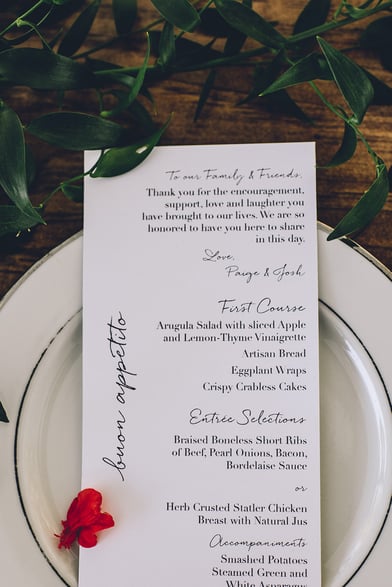 To our Family & Friends,
Thank you for the encouragement,
support, love and laughter you
have brought to our lives. We are so
honored to have you here to share
in this day.
Love,
Paige & Josh
buon appetito
First Course
Arugula Salad with sliced Apple
and Lemon-Thyme Vinaigrette
Artisan Bread
Eggplant Wraps
Crispy Crabless Cakes
Entrée Selections
Braised Boneless Short Ribs
of Beef, Pearl Onions, Bacon,
Bordelaise Sauce
or
Herb Crusted Statler Chicken
Breast with Natural Jus
Accompaniments
Smashed Potatoes
Steamed Green and
White Asparagus